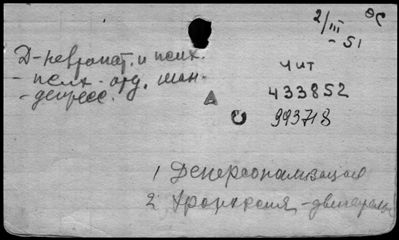 2/III
- 51
Д-невропат. и псих.
- псих. орд. ман.
- депресс.
чит
433852
993718
1 Деперсонализация
2 -двигательн